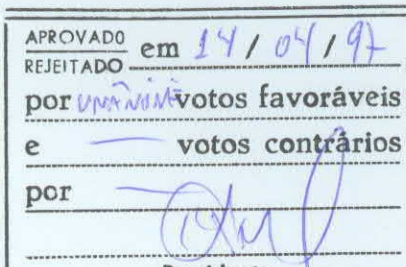 APROVADO
REJEITADO em 14 / 04 / 97
por unânime votos favoráveis
e — votos contrários
por —